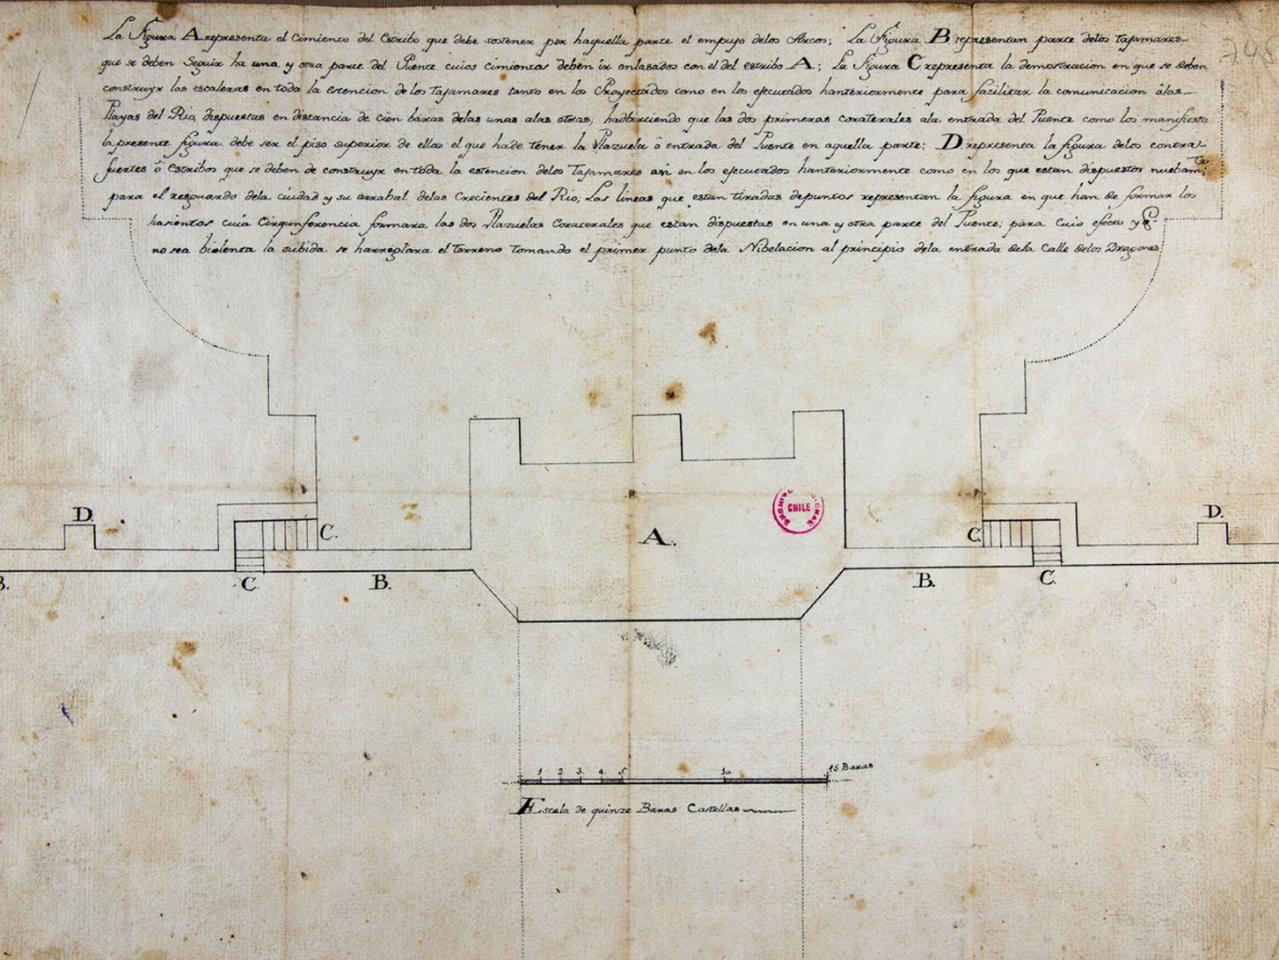 La Figura A representa el Cimiento del Estribo que debe sostener por haquella parte el empujo delos Arcos; La Figura B representan parte delos Tajamares
que se deben Seguir ha una y otra parte del Puente cuios cimientos deben ir enlasados con el del estribo A; La Figura C representa la demostracion en que se deben
construyr las escaleras en toda la estencion de los Tajamares tanto en los Proyectados como en los ejecutados hanteriormente para facilitar la comunicacion âlas
Playas del Rio dispuestas en distancia de cien baras delas unas alas otras; hadbirciendo que las dos primeras coraterales ala entrada del Puente como los manifiesta
la presente figura debe ser el piso superior de ellas el que hade tener la Plazuela ô entrada del Puente en aquella parte; D representa la figura delos contra-
fuertes ô Estribos que se deben de construyr en toda la estencion delos Tajamares asi en los ejecutados hanteriormente como en los que estan dispuestos nuebam.te
para el resguardo dela ciudad y su arrabal delas Crecientes del Rio; Las lineas que estan tiradas depuntos representan la figura en que han de formar los
hasientos cuia Cirqunferencia formara las dos Plazuelas Coraterales que estan dispuestas en una y otra parte del Puente; para cuio efeto y
no sea biolenta la subida se harreglara el terreno tomando el primer punto dela Nibelacion al principio dela entrada dela Calle delos Dragones;
745
D.
D.
C.
C
A.
CHILE
B.
C
B.
B.
C.
1 2 3 4 5
15 Baras
Escala de quinze Baras Castellas